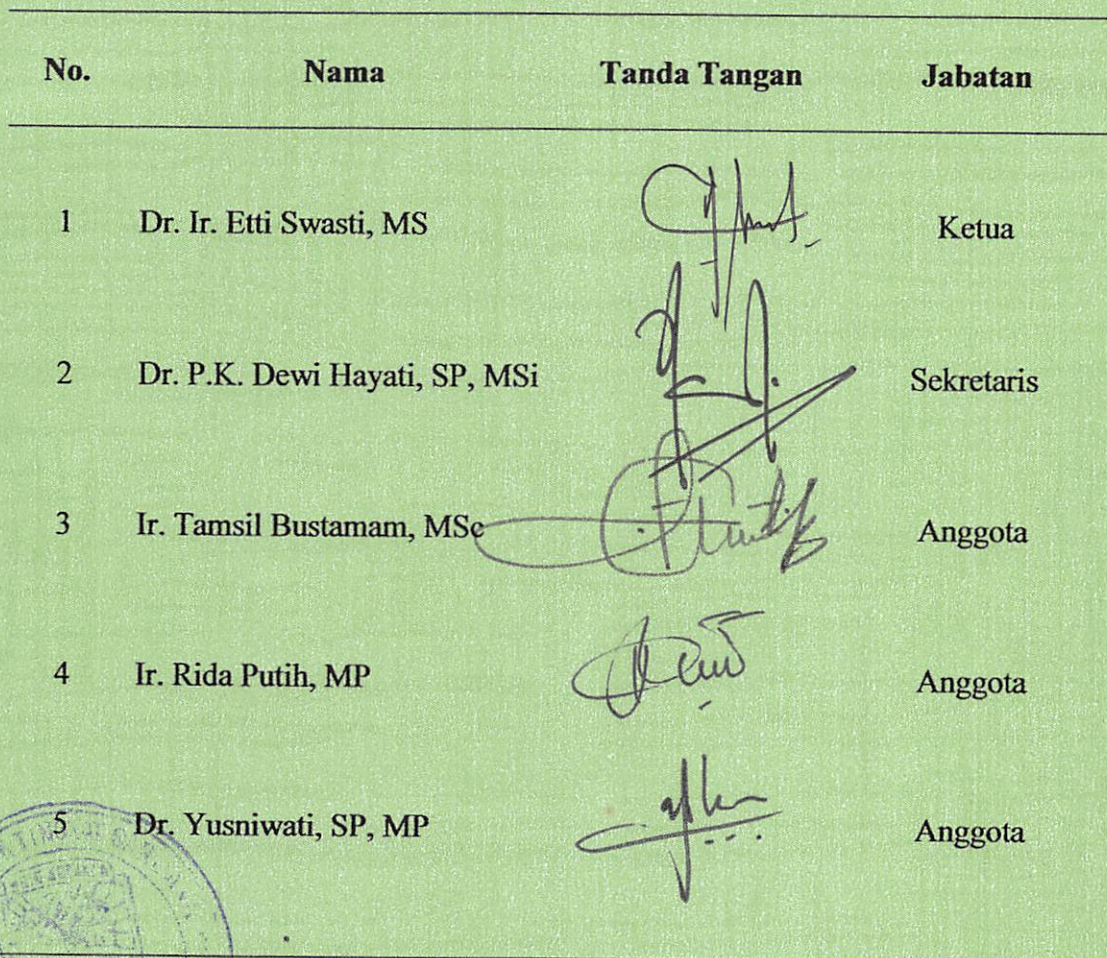 No. Nama Tanda Tangan Jabatan
1 Dr. Ir. Etti Swasti, MS Ketua
2 Dr. P.K. Dewi Hayati, SP, MSi Sekretaris
3 Ir. Tamsil Bustamam, MSc Anggota
4 Ir. Rida Putih, MP Anggota
5 Dr. Yusniwati, SP, MP Anggota